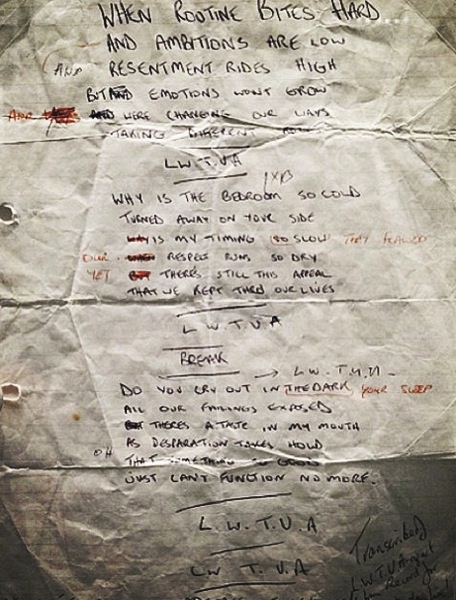 WHEN ROUTINE BITES HARD
AND AMBITIONS ARE LOW
AND RESENTMENT RIDES HIGH
BUT AND EMOTIONS WONT GROW
AND AND WERE CHANGING OUR WAYS
TAKING DIFFERENT
L.W.T.U.A
WHY IS THE BEDROOM SO COLD
TURNED AWAY ON YOUR SIDE
IS MY TIMING SO SLOW THAT FLAWED
OUR RESPECT RUNS SO DRY
YET BUT THERES STILL THIS APPEAL
THAT WE KEPT THRU OUR LIVES
L W T U A
BREAK
L.W.T.U.A
DO YOU CRY OUT IN THE DARK YOUR SLEEP
ALL OUR FAILINGS EXPOSED
BUT THERES A TASTE IN MY MOUTH
AS DESPARATION TAKES HOLD
OH THAT SOMETHING SO GOOD
JUST CANT FUNCTION NO MORE.
L.W.T.U.A
LW T.U.A
Transcribed
L.W.T.U.A